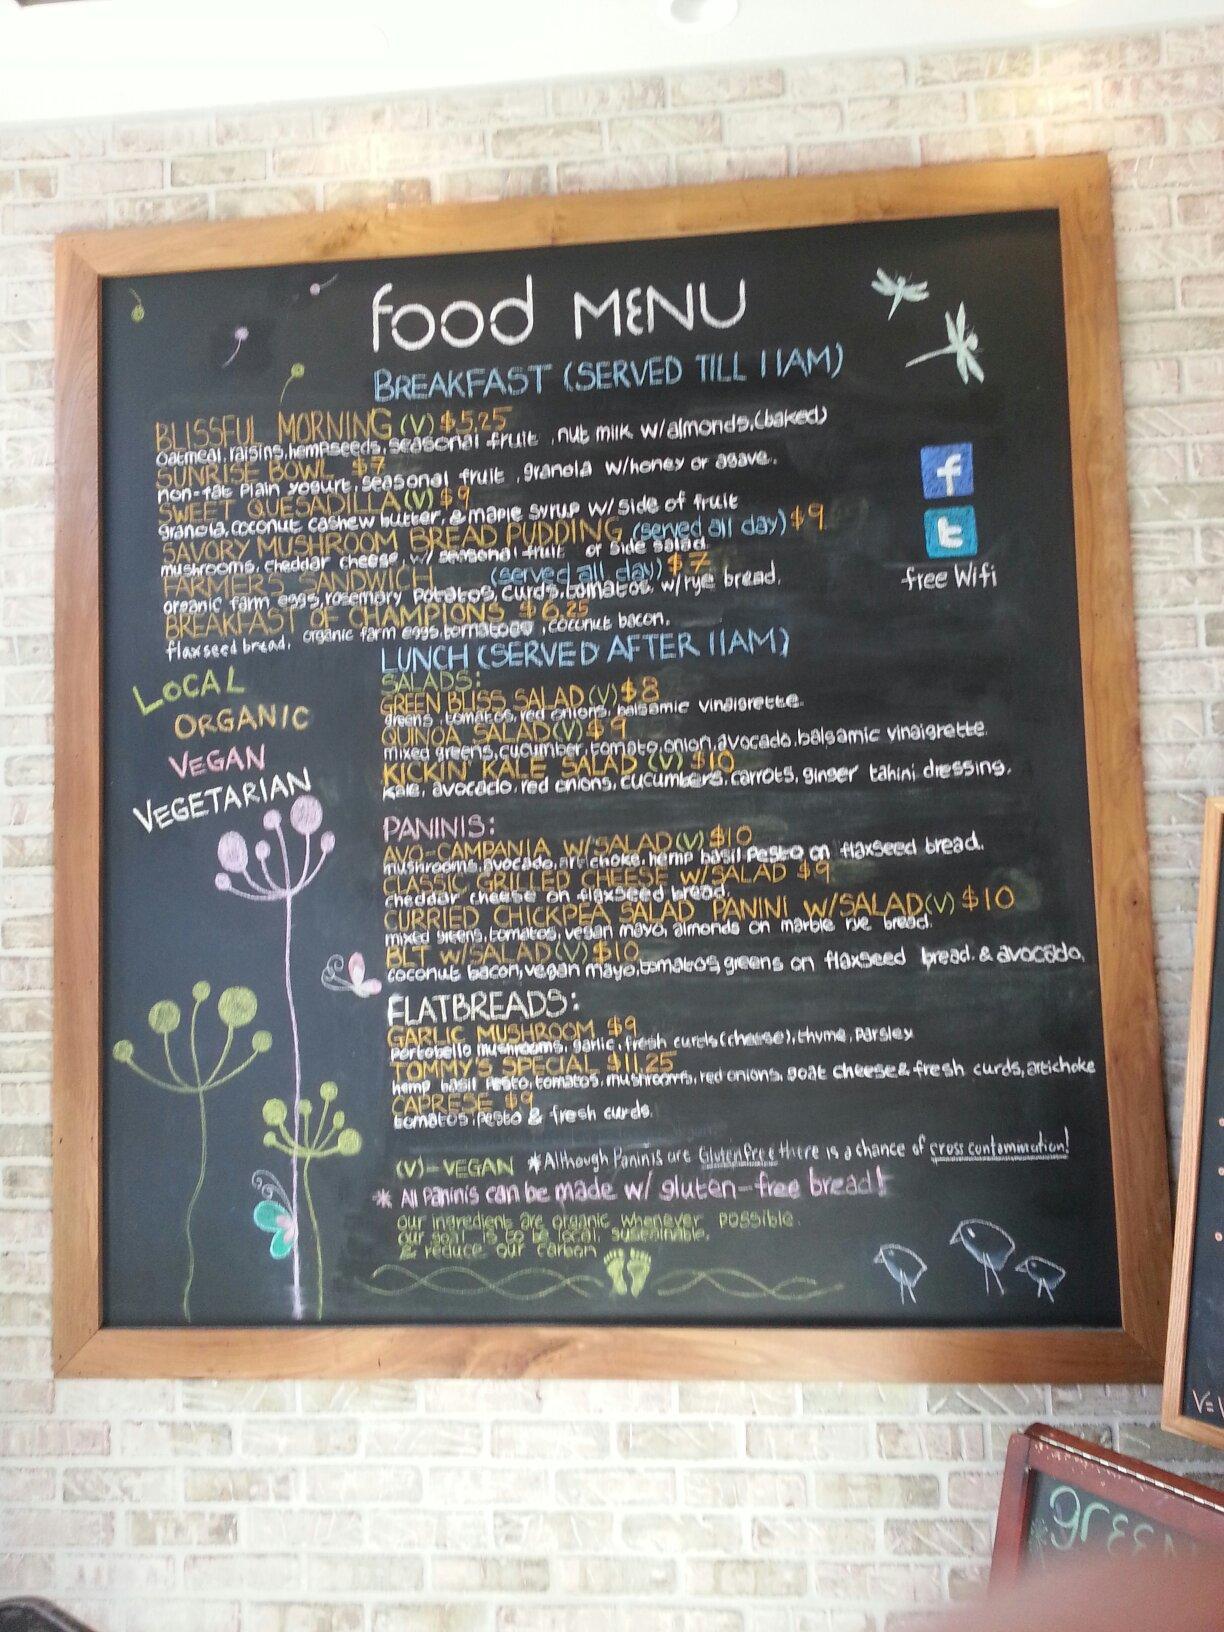 food MENU
BREAKFAST (SERVED TILL 11AM)
BLISSFUL MORNING (V) $5.25
oatmeal, raisins, hempseeds, seasonal fruit, nut milk w/almonds, (baked)
SUNRISE BOWL $7
non-fat plain yogurt, seasonal fruit, granola w/honey or agave.
SWEET QUESADILLA (V) $9
granola, coconut cashew butter, & maple syrup w/ side of fruit
SAVORY MUSHROOM BREAD PUDDING (served all day) $9
mushrooms, cheddar cheese, w/ seasonal fruit or side salad.
FARMERS SANDWICH (served all day) $7
organic farm eggs, rosemary potatos, curds, tomatos, w/rye bread.
BREAKFAST OF CHAMPIONS $6.25
flaxseed bread, organic farm eggs, tomatoes, coconut bacon.
LUNCH (SERVED AFTER 11AM)
SALADS:
GREEN BLISS SALAD (V) $8
greens, tomatos, red onions, balsamic vinaigrette.
QUINOA SALAD (V) $9
mixed greens, cucumber, tomato, onion, avocado, balsamic vinaigrette.
KICKIN' KALE SALAD (V) $10
kale, avocado, red onions, cucumbers, carrots, ginger tahini dressing.
PANINIS:
AVO-CAMPANIA W/SALAD (V) $10
mushrooms, avocado, artichoke, hemp basil pesto on flaxseed bread.
CLASSIC GRILLED CHEESE W/SALAD $9
cheddar cheese on flaxseed bread.
CURRIED CHICKPEA SALAD PANINI W/SALAD (V) $10
mixed greens, tomatos, vegan mayo, almonds on marble rye bread.
BLT W/SALAD (V) $10
coconut bacon, vegan mayo, tomatos, greens on flaxseed bread. & avocado,
FLATBREADS:
GARLIC MUSHROOM $9
Portobello mushrooms, garlic, fresh curds (cheese), thyme, Parsley
TOMMY'S SPECIAL $11.25
hemp basil Pesto, tomatos, mushrooms, red onions, goat cheese & fresh curds, artichoke
CAPRESE $9
tomatos, pesto & fresh curds.
(V) = VEGAN *Although Paninis are Gluten free there is a chance of cross contamination!
* All Paninis can be made w/ gluten-free bread!
our ingredient are organic whenever possible.
our goal is to be local, sustainable,
& reduce our carbon
LOCAL
ORGANIC
VEGAN
VEGETARIAN
f
t
free Wifi
V=